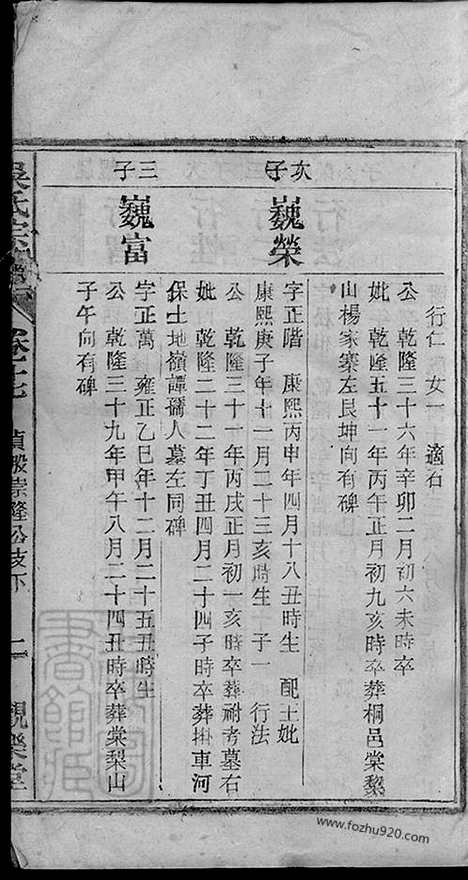 次子
三子
巍榮
巍富
行仁 女一 適石
公 乾隆三十六年辛卯二月初六未時卒
妣 乾隆五十一年丙午正月初九亥時卒葬桐邑棠棃
山楊家寨左艮坤向有碑
字正階 康熙丙申年四月十八丑時生 配王妣
康熙庚子年十一月二十三亥時生 子一 行法
公 乾隆三十一年丙戌正月初一亥時卒葬祔考墓右
妣 乾隆二十二年丁丑四月二十四子時卒葬掛車河
保土地嶺譚礄人墓左同碑
字正萬 雍正乙巳年十二月二十五丑時生
公 乾隆三十九年甲午八月二十四丑時卒葬棠梨山
子午向有碑
吳氏宗譜
卷十七 貞股崇隆公支下
二 觀樂堂
書館
www.fozhu920.com